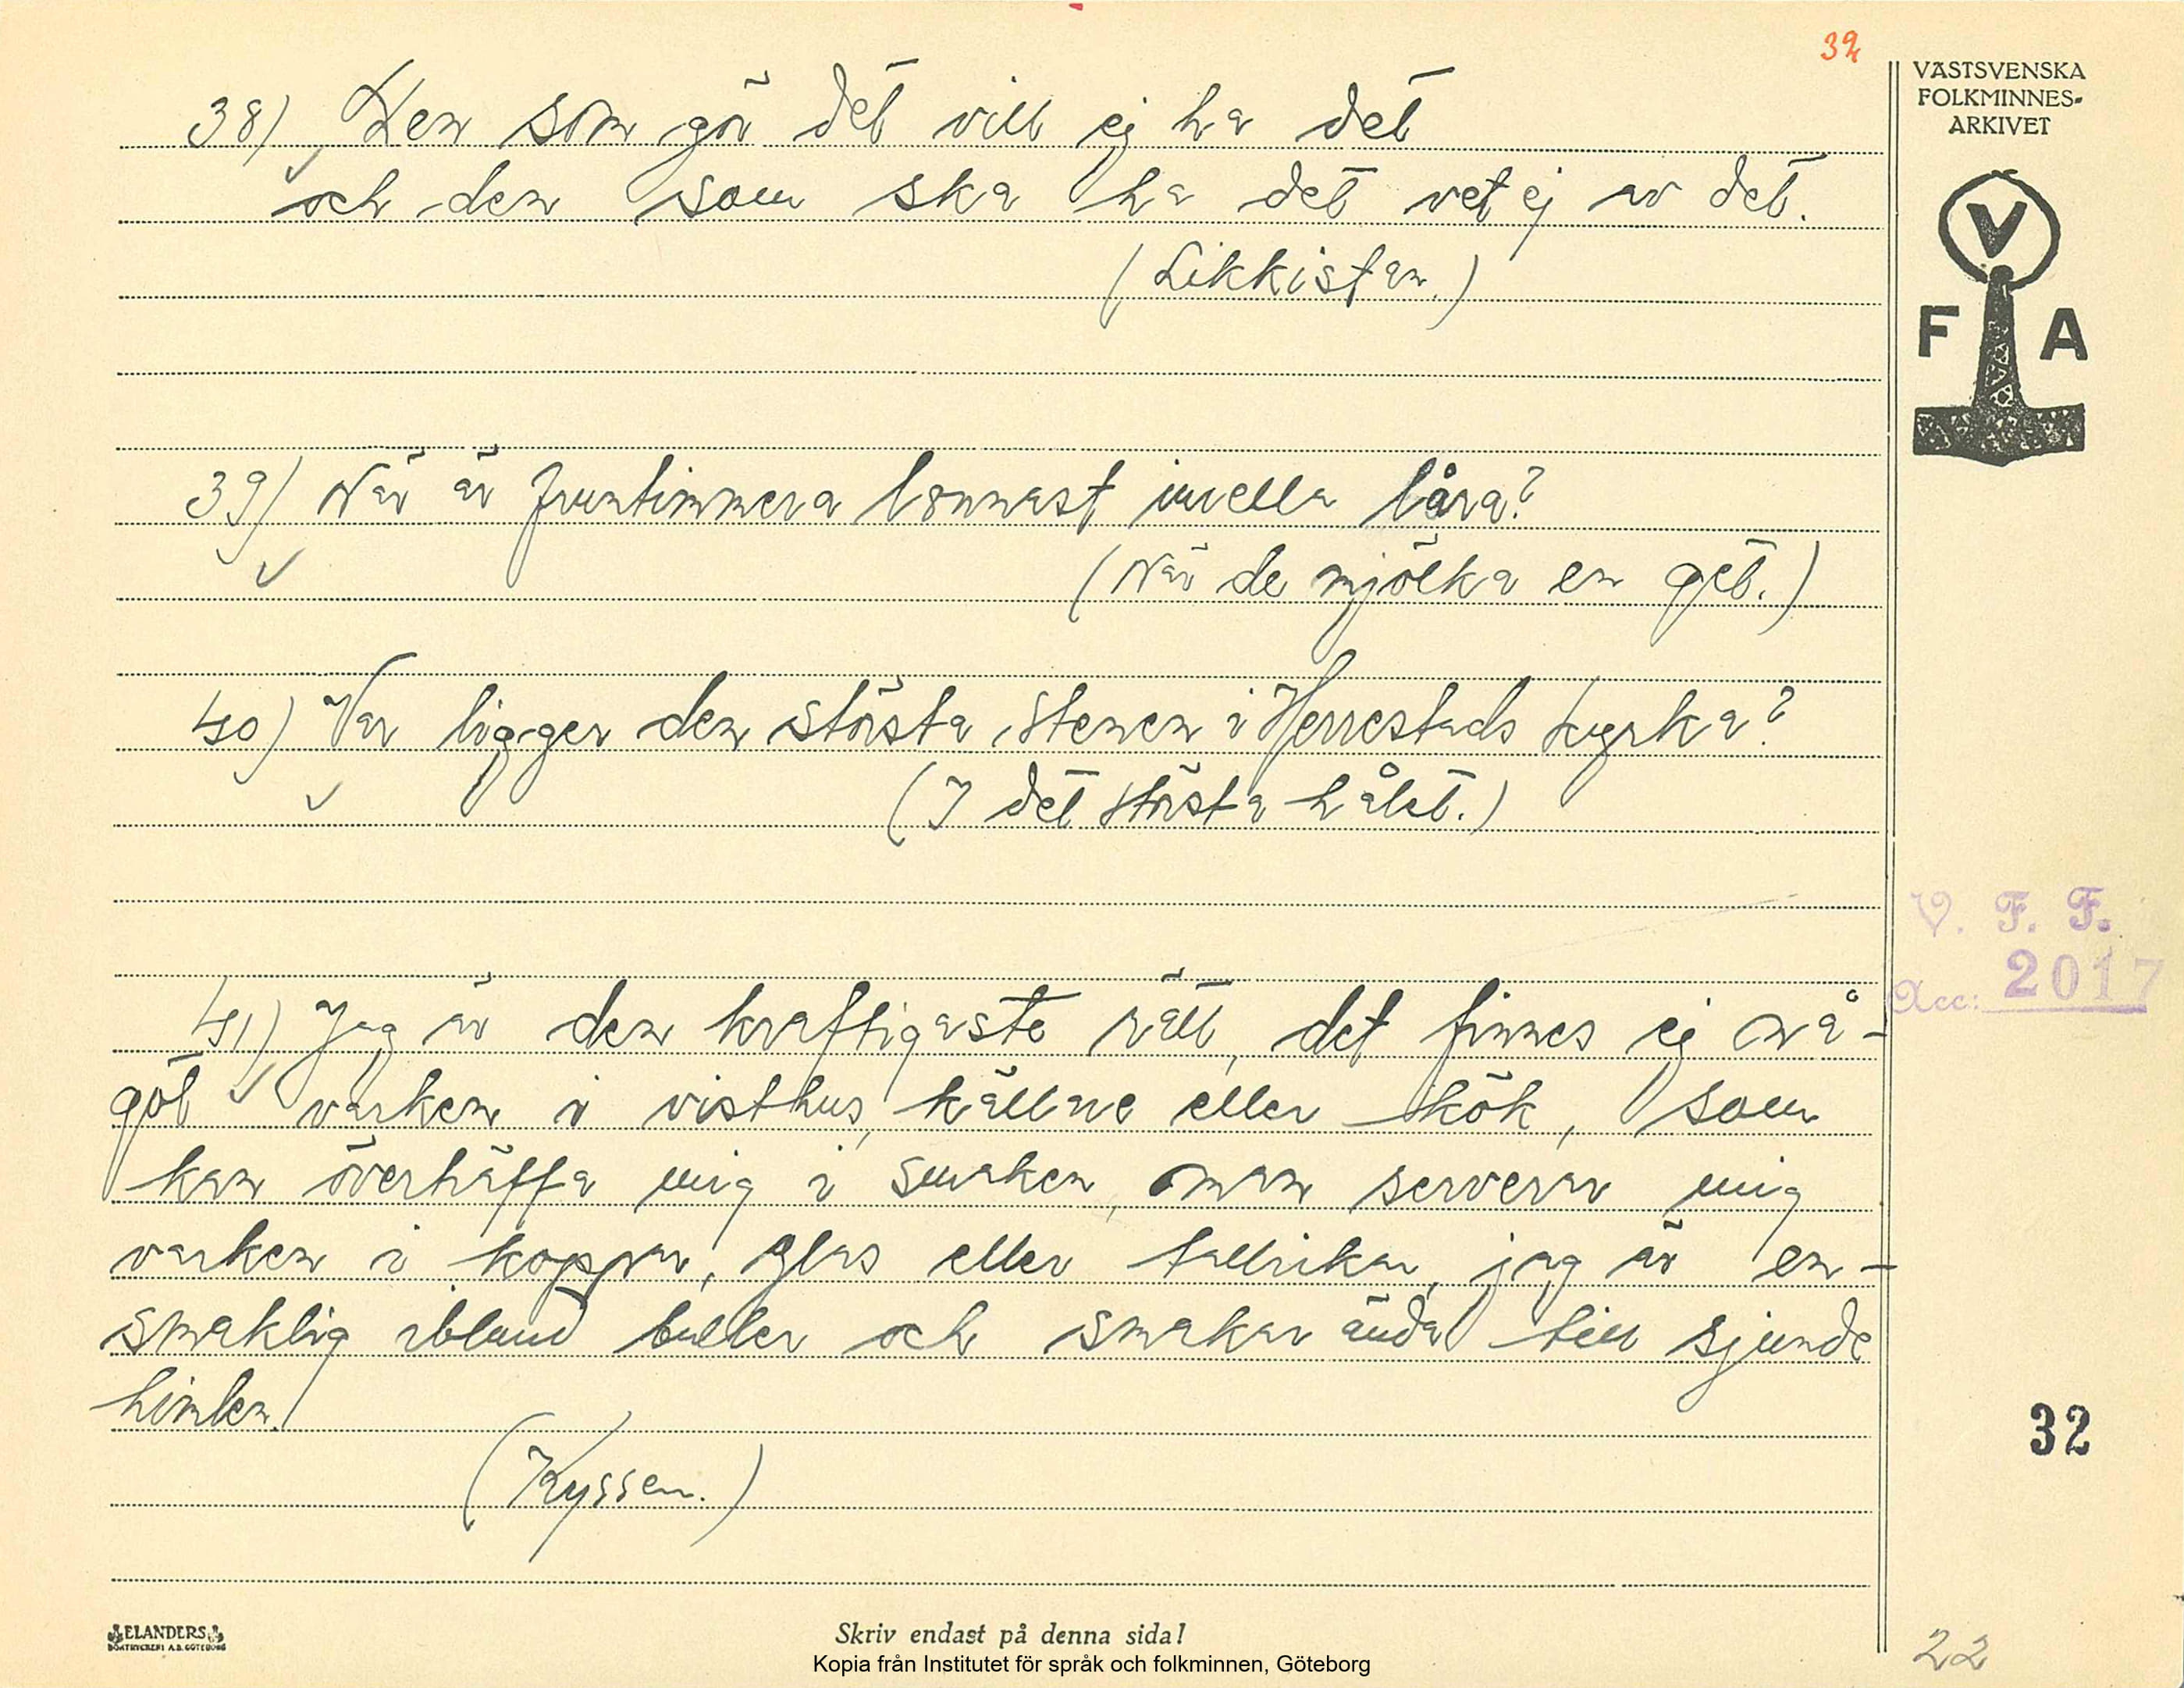 32
VÄSTSVENSKA
FOLKMINNES-
ARKIVET
38) Den som gör det vill ej ha det
och den som ska ha det vet ej av det.
(Likkistan.)
V
F A
39) När är fruntimmera lonnast imella låra?
(När de mjölka en get.)
40) Var ligger den största stenen i Herrestads kyrka?
(I det största hålet.)
V. F. F.
Acc: 2017
41) Jag är den kraftigaste rätt, det finnes ej nå-
got varken i visthus, källare eller kök, som
kan överträffa mig i smaken, man serverar mig
varken i koppar, glas eller tallrikar, jag är en-
smaklig ibland buller och smakar ända till sjunde
himlen.
32
(Kyssen.)
ELANDERS
BOKTRYCKERI A.B. GÖTEBORG
Skriv endast på denna sida!
Kopia från Institutet för språk och folkminnen, Göteborg
22